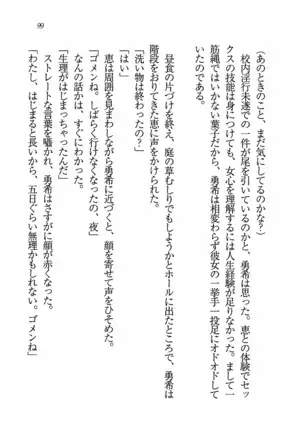 99
(あのときのこと、まだ気にしてるのかな?)
校内淫行未遂での一件が尾を引いているのかと、勇希は思った。恵との体験でセッ
クスの技能は身につけても、女心を理解するには人生経験が足りなかった。まして一
筋縄ではいかない葉子だから、勇希は相変わらず彼女の一挙手一投足にオドオドして
いたのである。
昼食の片づけを終え、庭の草むしりでもしようかとホールに出たところで、勇希は
階段をおりてきた恵に声をかけられた。
「洗い物は終わったの?」
「はい」
恵は周囲を見まわしながら勇希に近づくと、顔を寄せて声をひそめた。
「ゴメンね。しばらく行けなくなったの、夜」
なんの話かは、すぐにわかった。
「生理がはじまっちゃったんだ」
ストレートな言葉を囁かれ、勇希はさすがに顔が赤くなった。
「わたし、はじまると長いから、五日ぐらい無理かもしれない。ゴメンね」